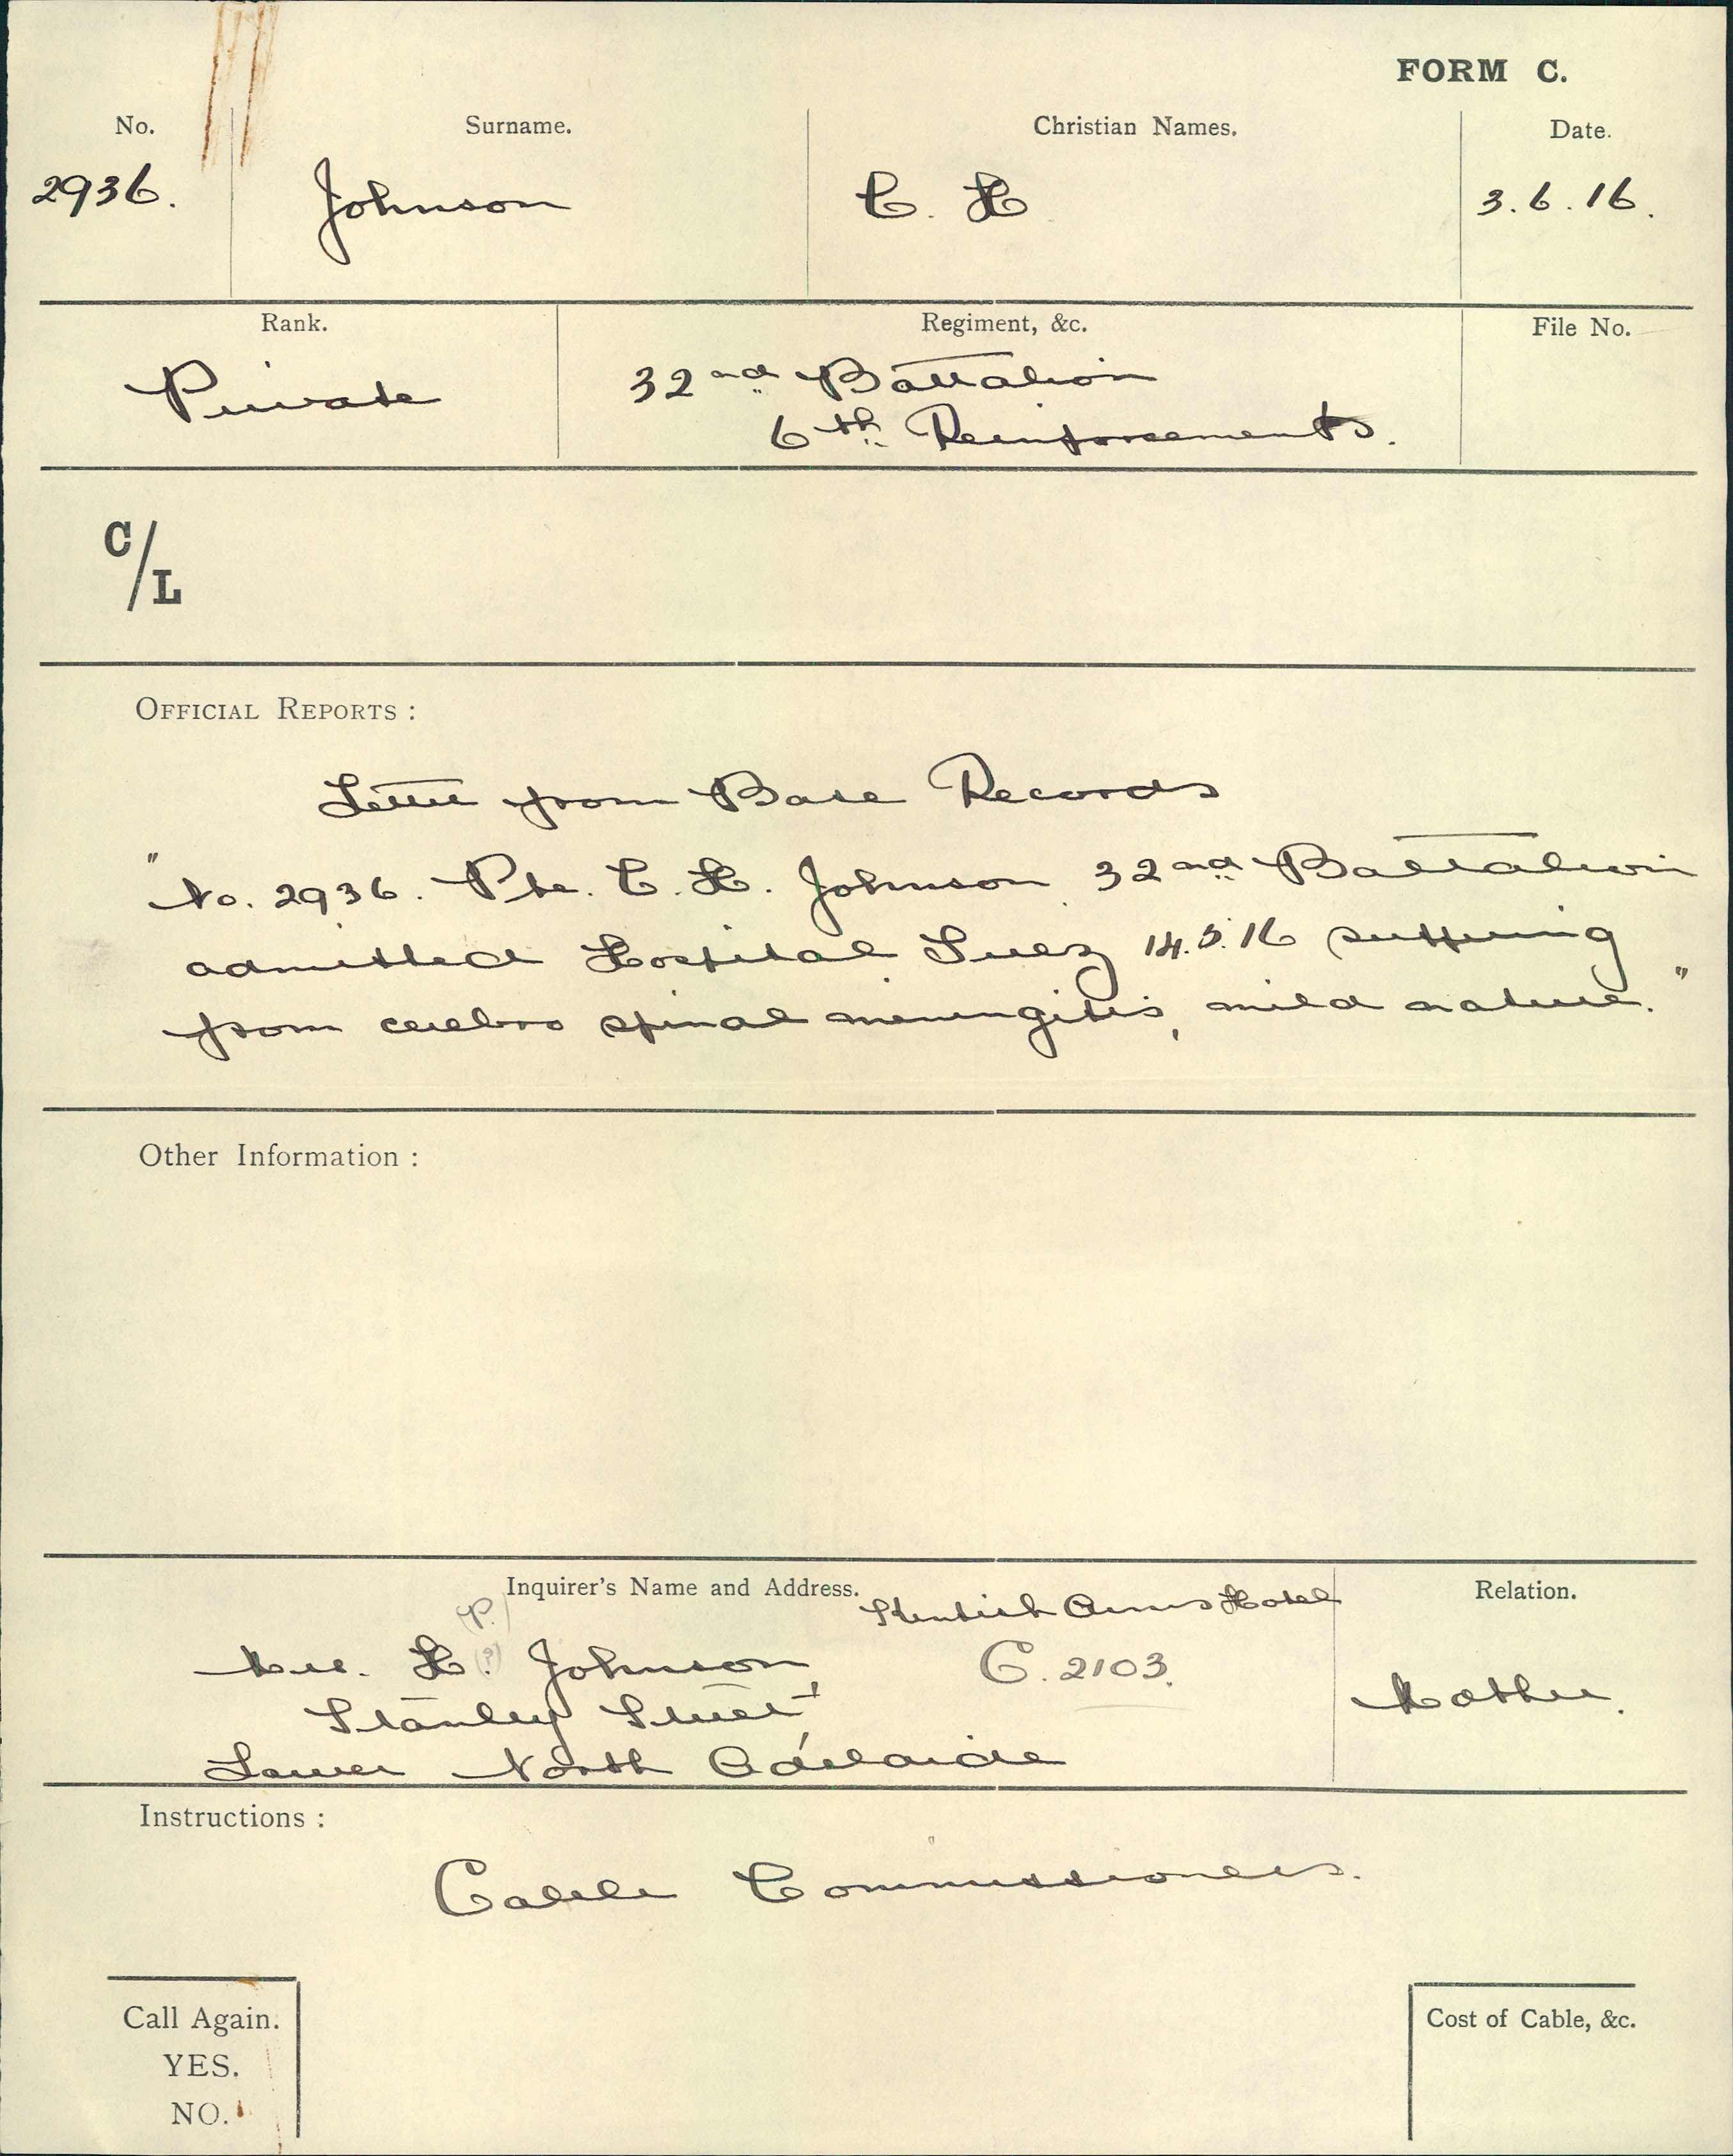 FORM C.
No. Surname. Christian Names. Date.
2936. Johnson C. H 3.6.16.
Rank. Regiment, &c. File No.
Private 32nd Battalion
6th Reinforcements.
C/L
OFFICIAL REPORTS :
Letter from Base Records
"No. 2936. Pte. C. H. Johnson 32nd Battalion
admitted Hospital Suez 14.5.16 suffering
from cerebro spinal meningitis, mild nature."
Other Information :
Inquirer's Name and Address. Relation.
Kentish Arms Hotel
(P.)
Mrs. H. (?) Johnson C. 2103.
Stanley Street Mother.
Lower North Adelaide
Instructions :
Cable Commissioners.
Call Again. Cost of Cable, &c.
YES.
NO.